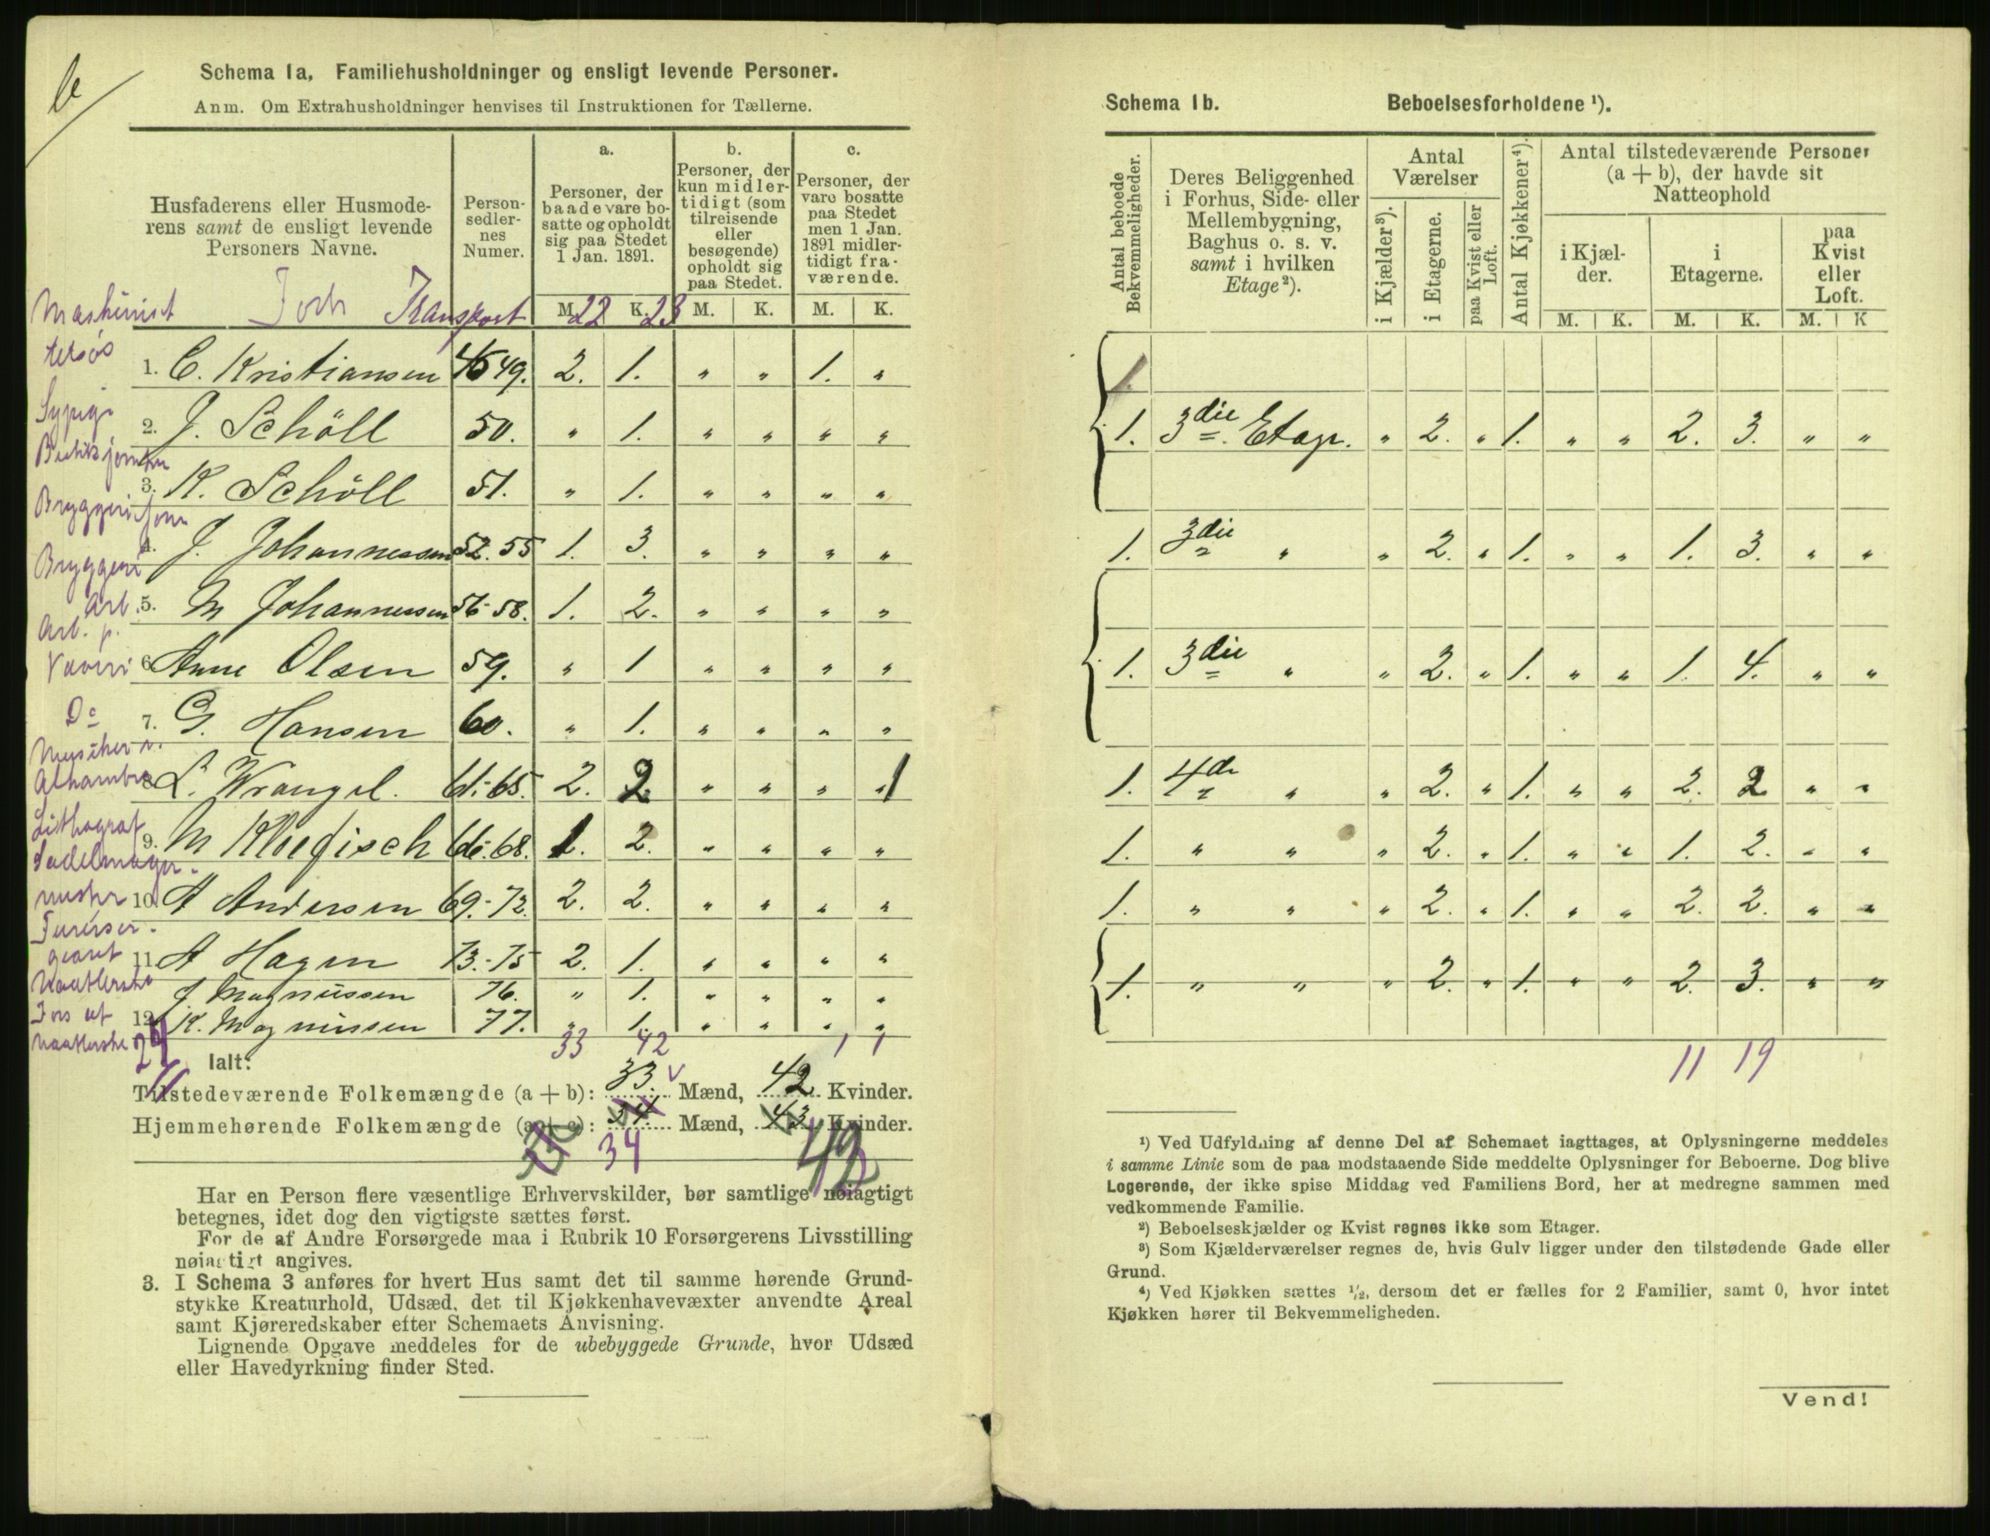 Schema 1a, Familiehusholdninger og ensligt levende Personer.
Anm. Om Extrahusholdninger henvises til Instruktionen for Tællerne.
Husfaderens eller Husmoderens samt de ensligt levende Personers Navne.
Personsedlernes Numer.
a.
Personer, der baade vare bosatte og opholdt sig paa Stedet 1 Jan. 1891.
b.
Personer, der kun midlertidigt (som tilreisende eller besøgende) opholdt sig paa Stedet.
c.
Personer, der vare bosatte paa Stedet men 1 Jan. 1891 midlertidigt fraværende.
M. K. M. K. M. K.
Transport 22 23
Maskinist
1. C. Kristiansen 45 49. 2. 1. " " 1. "
Sypige
2. J. Schöll 50. " 1. " " " "
3. K. Schöll 51. " 1. " " " "
4. J. Johannessen 52-55 1. 3. " " " "
Bryggeri
Arb.
5. M Johannessen 56-58. 1. 2. " " " "
Arb. p.
Væveri
6. Anne Olsen 59. " 1 " " " "
Do
7. G. Hansen 60. " 1. " " " "
Alhambra
8. L. Wrangel. 61-65. 2. 2 " " " 1
Lithograf
9. M Kloefisch 66-68. 1. 2. " " " "
Sadelmager-
mester
10. A Andersen 69-72. 2. 2. " " " "
11. A Hagen 73-75 2. 1. " " " "
J. Magnussen 76. " 1. " " " "
12. K. Magnussen 77. " 1. " " " "
33 42 1 1
Ialt:
Tilstedeværende Folkemængde (a + b): 33. Mænd, 42 Kvinder.
Hjemmehørende Folkemængde (a + c): 34. Mænd, 43 Kvinder.
34 42
Har en Person flere væsentlige Erhvervskilder, bør samtlige nøiagtigt
betegnes, idet dog den vigtigste sættes først.
For de af Andre Forsørgede maa i Rubrik 10 Forsørgerens Livsstilling
nøiagtigt angives.
3. I Schema 3 anføres for hvert Hus samt det til samme hørende Grund-
stykke Kreaturhold, Udsæd, det til Kjøkkenhavevæxter anvendte Areal
samt Kjøreredskaber efter Schemaets Anvisning.
Lignende Opgave meddeles for de ubebyggede Grunde, hvor Udsæd
eller Havedyrkning finder Sted.
Schema 1b. Beboelsesforholdene ¹).
Antal beboede Bekvemmeligheder.
Deres Beliggenhed i Forhus, Side- eller Mellembygning, Baghus o. s. v. samt i hvilken Etage ²).
Antal Værelser
i Kjælder ³).
i Etagerne.
paa Kvist eller Loft.
Antal Kjøkkener ⁴).
Antal tilstedeværende Personer (a + b), der havde sit Natteophold
i Kjælder.
i Etagerne.
paa Kvist eller Loft.
M. K. M. K. M. K
1.
1. 3die Etage. " 2. " 1. " " 2. 3. " "
1. 3die " " 2. " 1. " " 1. 3. " "
1. 3die " " 2. " 1. " " 1. 4. " "
1. 4de " " 2. " 1. " " 2. 2 " "
1. " " " 2. " 1. " " 1. 2. " "
1. " " " 2. " 1. " " 2. 2. " "
1. " " " 2. " 1. " " 2. 3. " "
11 19
¹) Ved Udfyldning af denne Del af Schemaet iagttages, at Oplysningerne meddeles
i samme Linie som de paa modstaaende Side meddelte Oplysninger for Beboerne. Dog blive
Logerende, der ikke spise Middag ved Familiens Bord, her at medregne sammen med
vedkommende Familie.
²) Beboelseskjælder og Kvist regnes ikke som Etager.
³) Som Kjælderværelser regnes de, hvis Gulv ligger under den tilstødende Gade eller
Grund.
⁴) Ved Kjøkken sættes ½, dersom det er fælles for 2 Familier, samt 0, hvor intet
Kjøkken hører til Bekvemmeligheden.
Vend!